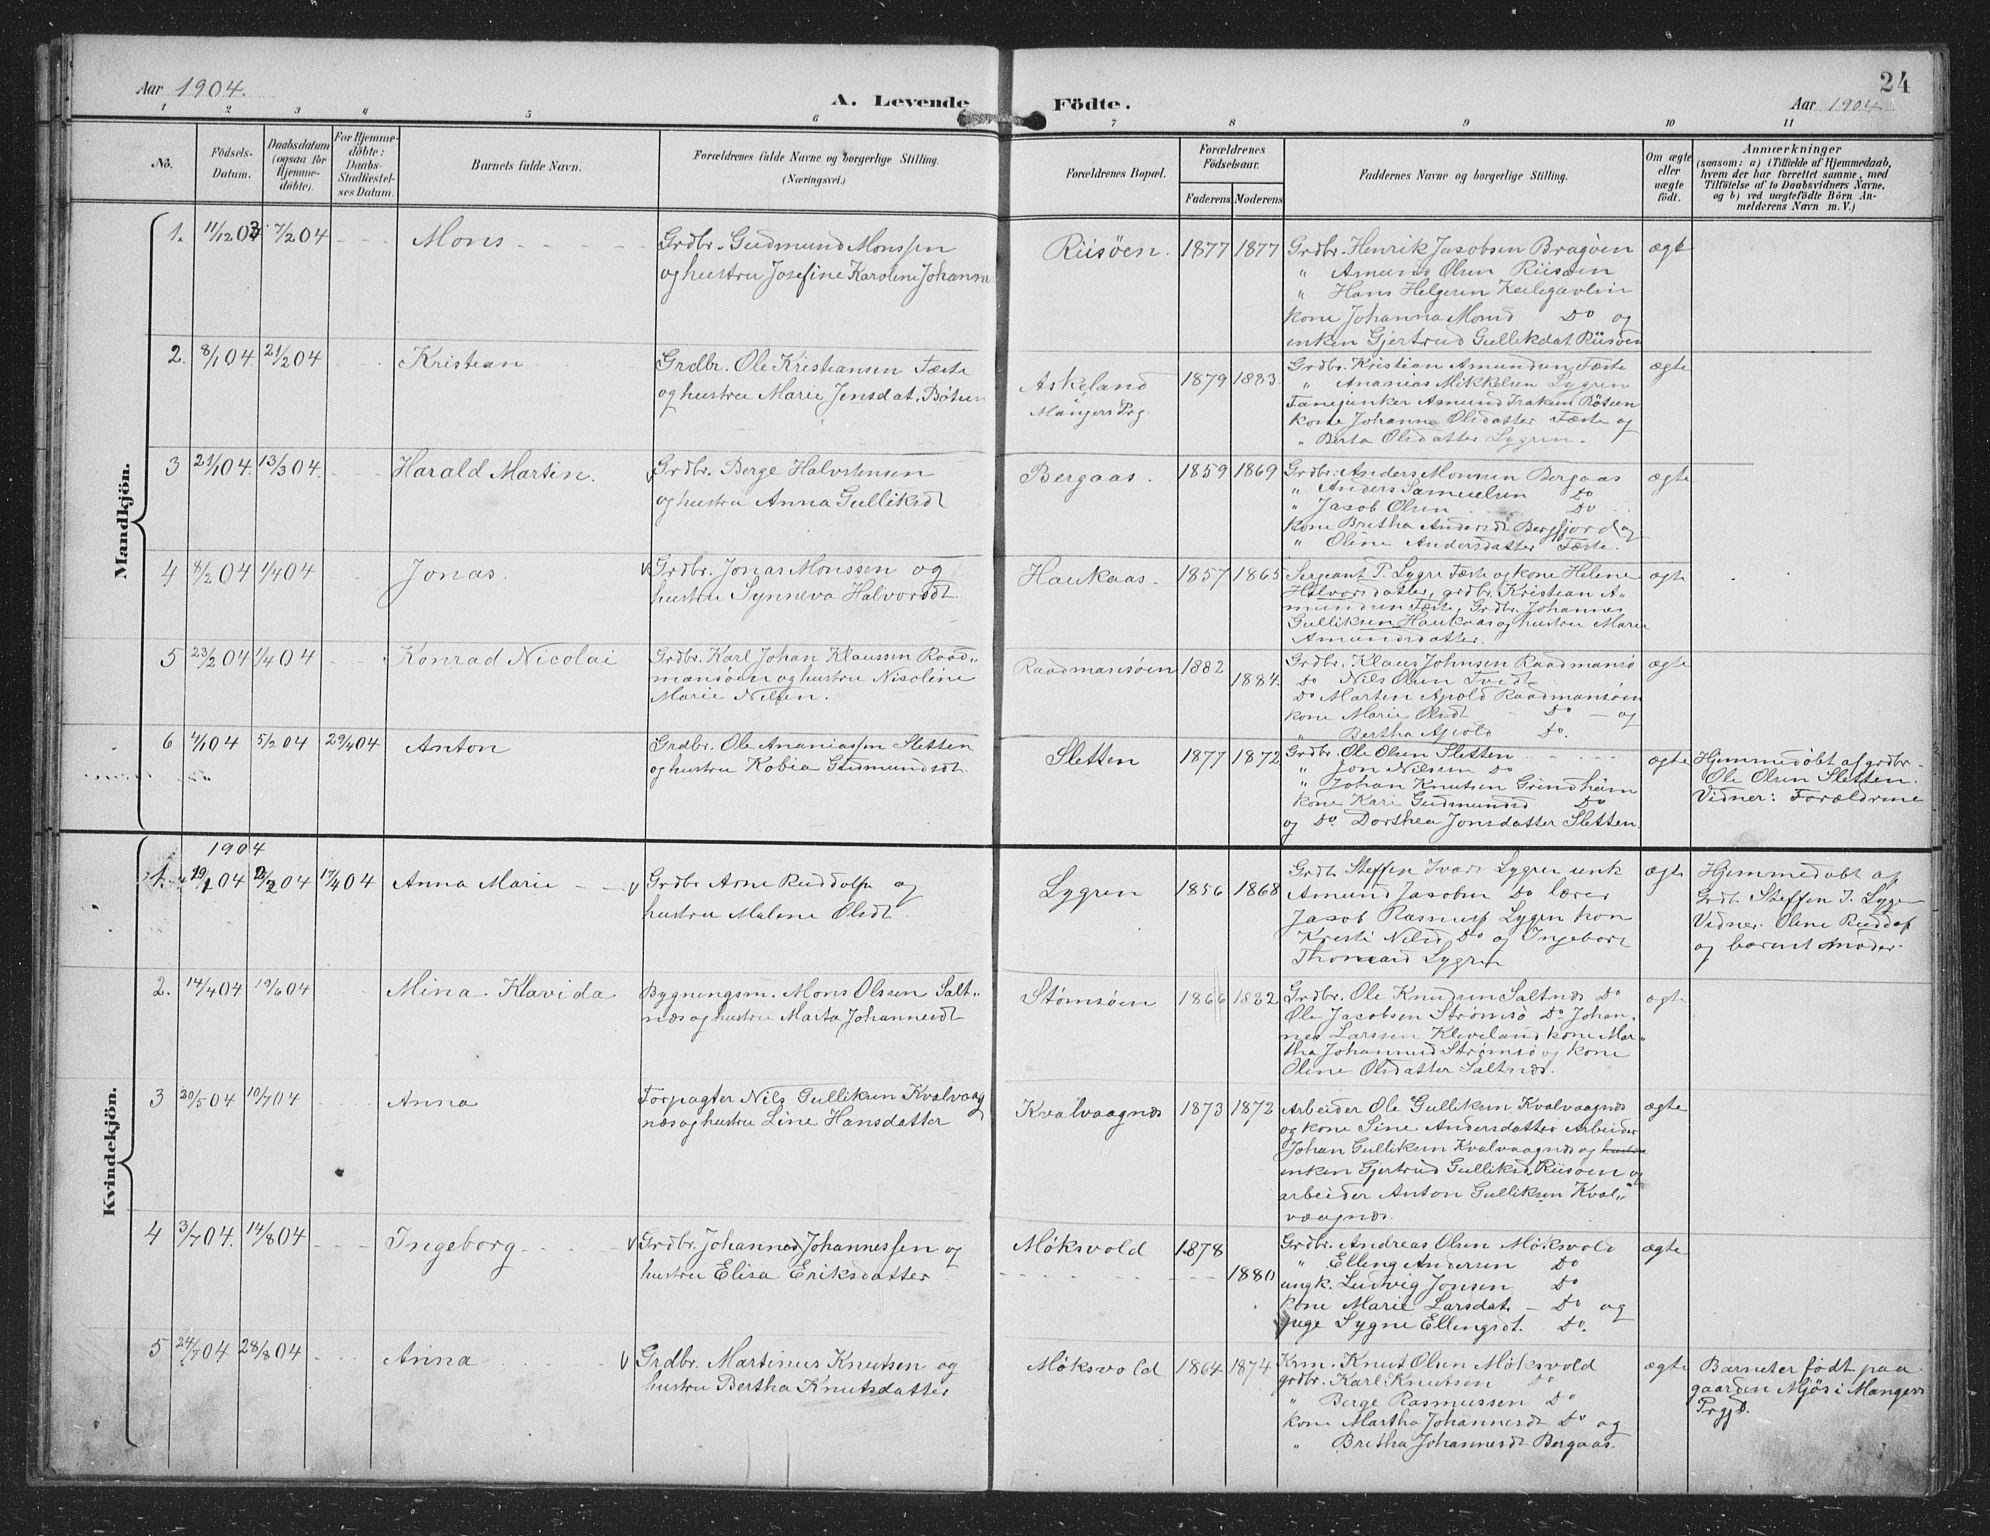 24
Aar 1904.
A. Levende Födte.
Aar 1904
1 2 3 4 5 6 7 8 9 10 11
No.
Födsels-
Datum.
Daabsdatum
(ogsaa for
Hjemme-
döbte).
For Hjemme-
döbte:
Daabs-
Stadfæstel-
ses Datum.
Barnets fulde Navn.
Forældrenes fulde Navne og borgerlige Stilling.
(Næringsvei.)
Forældrenes Bopæl.
Forældrenes
Födselsaar.
Faderens Moderens
Faddernes Navne og borgerlige Stilling.
Om ægte
eller
uægte
födt.
Anmærkninger
(saasom: a) i Tilfælde af Hjemmedaab,
hvem der har forrettet samme, med
Tilföielse af to Daabsvidners Navne.
og b) ved uægtefödte Börn An-
melderens Navn m. V.)
Mandkjön.
1. 11/12 03 7/2 04 Mons
Grdbr. Gudmund Monssen
og hustru Josefine Karoline Johanne
Riisöen. 1877 1877
Grdbr. Henrik Jacobsen Bragöen
" Amund Olsen Riisöen
" Hans Helgesen
kone Johanna Monsd Do og
enken Gjertrud Gulliksdat Riisöen
ægte
2. 8/1 04 21/2 04 Kristian
Grdbr. Ole Kristiansen Fæste
og hustru Marie Jensdat. Böten
Askeland
Mangers Prg.
1879 1883.
Grdbr. Kristian Amundsen Fæste
" Ananias Mikkelsen Lygren
Amund Isaksen
kone Johanna Olsdatter Fæste og
" Berta Olsdatter Lygren.
ægte
3 24/1 04. 13/3 04. Harald Martin.
Grdbr. Berge Halvstensen
og hustru Anna Gulliksdt
Bergaas. 1859 1869
Grdbr. Anders Monsen Bergaas
" Anders Samuelsen Do
" Jacob Olsen Do
kone Bretha Andersdt Bergfjord og
" Oline Andersdatter Fæste.
ægte
4 8/2 04 1/4 04 Jonas.
Grdbr. Jonas Monssen og
hustru Synneva Halvorsdt.
Haukaas. 1857 1865
Sergeant P. Lygre Fæste og kone Helene
Halvorsdatter, grdbr. Kristian A-
mundsen Fæste, Grdbr. Johannes
Gulliksen Haukaas og hustru Marie
Amundsdatter.
ægte
5 23/2 04 1/4 04 Konrad Nicolai
Grdbr. Karl Johan Klaussen Raad-
mansöen og hustru Nicoline
Marie Nilsen.
Raadmansöen 1882 1884.
Grdbr. Klaus Johnsen Raadmansö
Do Nils Olsen Tveit
Do Marten Apold Raadmansöen
kone Marie Olsdt - Do - og
" Bertha Apold Do.
ægte
6 4/1 04 5/2 04 29/4 04 Anton
Grdbr. Ole Ananiassen Sletten
og hustru Kobia Gudmundsdt.
Sletten 1877 1872
Grdbr. Ole Olsen Sletten
" Jon Nilsen Do
" Johan Knutsen Grindheim
kone Kari Gudmundsd Do
og Do. Dorthea Jonsdatter Sletten.
ægte
Hjemmedöbt af grdbr.
Ole Olsen Sletten.
Vidner: Forældrene
Kvindekjön.
1904
1. 19/1 04 2/2 04 17/4 04 Anna Marie
Grdbr Arne Ruddolfs og
hustru Malene Olsdt.
Lygren 1856 1868
Grdb Steffen Ivars Lygren unk
Amund Jacobsen Do lærer
Jacob Rasmus Lygren kon
Kristi Nilsd Do og Ingeborg
Thomasd Lygren
ægte
Hjemmedøbt af
Grdb. Steffen I. Lygre
Vidner. Oline Ruddolf
og barnets moder.
2. 14/4 04 19/6 04 Mina Klavida
Bygningsm. Mons Olssen Salt-
næs og hustru Marta Johannesdt
Stømsöen 1866 1882
Grdbr. Ole Knudsen Saltnæs Do
Ole Jacobsen Strømsö Do Johan-
nes Larssen Kleveland kone Mar-
tha Johannesd Strømsö og kone
Oline Olsdatter Saltnæs.
ægte
3 20/5 04 10/7 04 Anna
Forpagter Nils Gulliksen Kvalvaag
næs og hustru Line Hansdatter
Kvalvaagnæs 1873 1872
Arbeider Ole Gulliksen Kvalvaagnæs
og kone Sine Andersdatter Arbeider
Johan Gulliksen Kvalvaagnæs og hustru
enken Gjertrud Gulliksd. Riisöen og
arbeider Anton Gulliksen Kval-
vaagnæs.
ægte
4 3/7 04. 14/8 04 Ingeborg
Grdbr. Johannes Johannessen og
hustru Elisa Eriksdatter
Møksvold 1878 1880
Grdbr. Andreas Olsen Møksvold
" Elling Andersen Do
ungk. Ludvig Jonsen Do
kone Marie Larsdat. - Do og
pige Sygni Ellingsdt. Do.
ægte
5 24/7 04 28/8 04 Anna
Grdbr. Martinus Knutsen og
hustru Bertha Knutsdatter
Møksvold 1864 1874
Krm. Knut Olsen Møksvold
grdbr. Karl Knutsen Do
" Berge Rasmussen Do
kone Martha Johannesdt Do og
" Bretha Johannesdt Bergaas.
ægte
Barnet er födt paa
gaarden Mjös i Mangers
Prgjd.